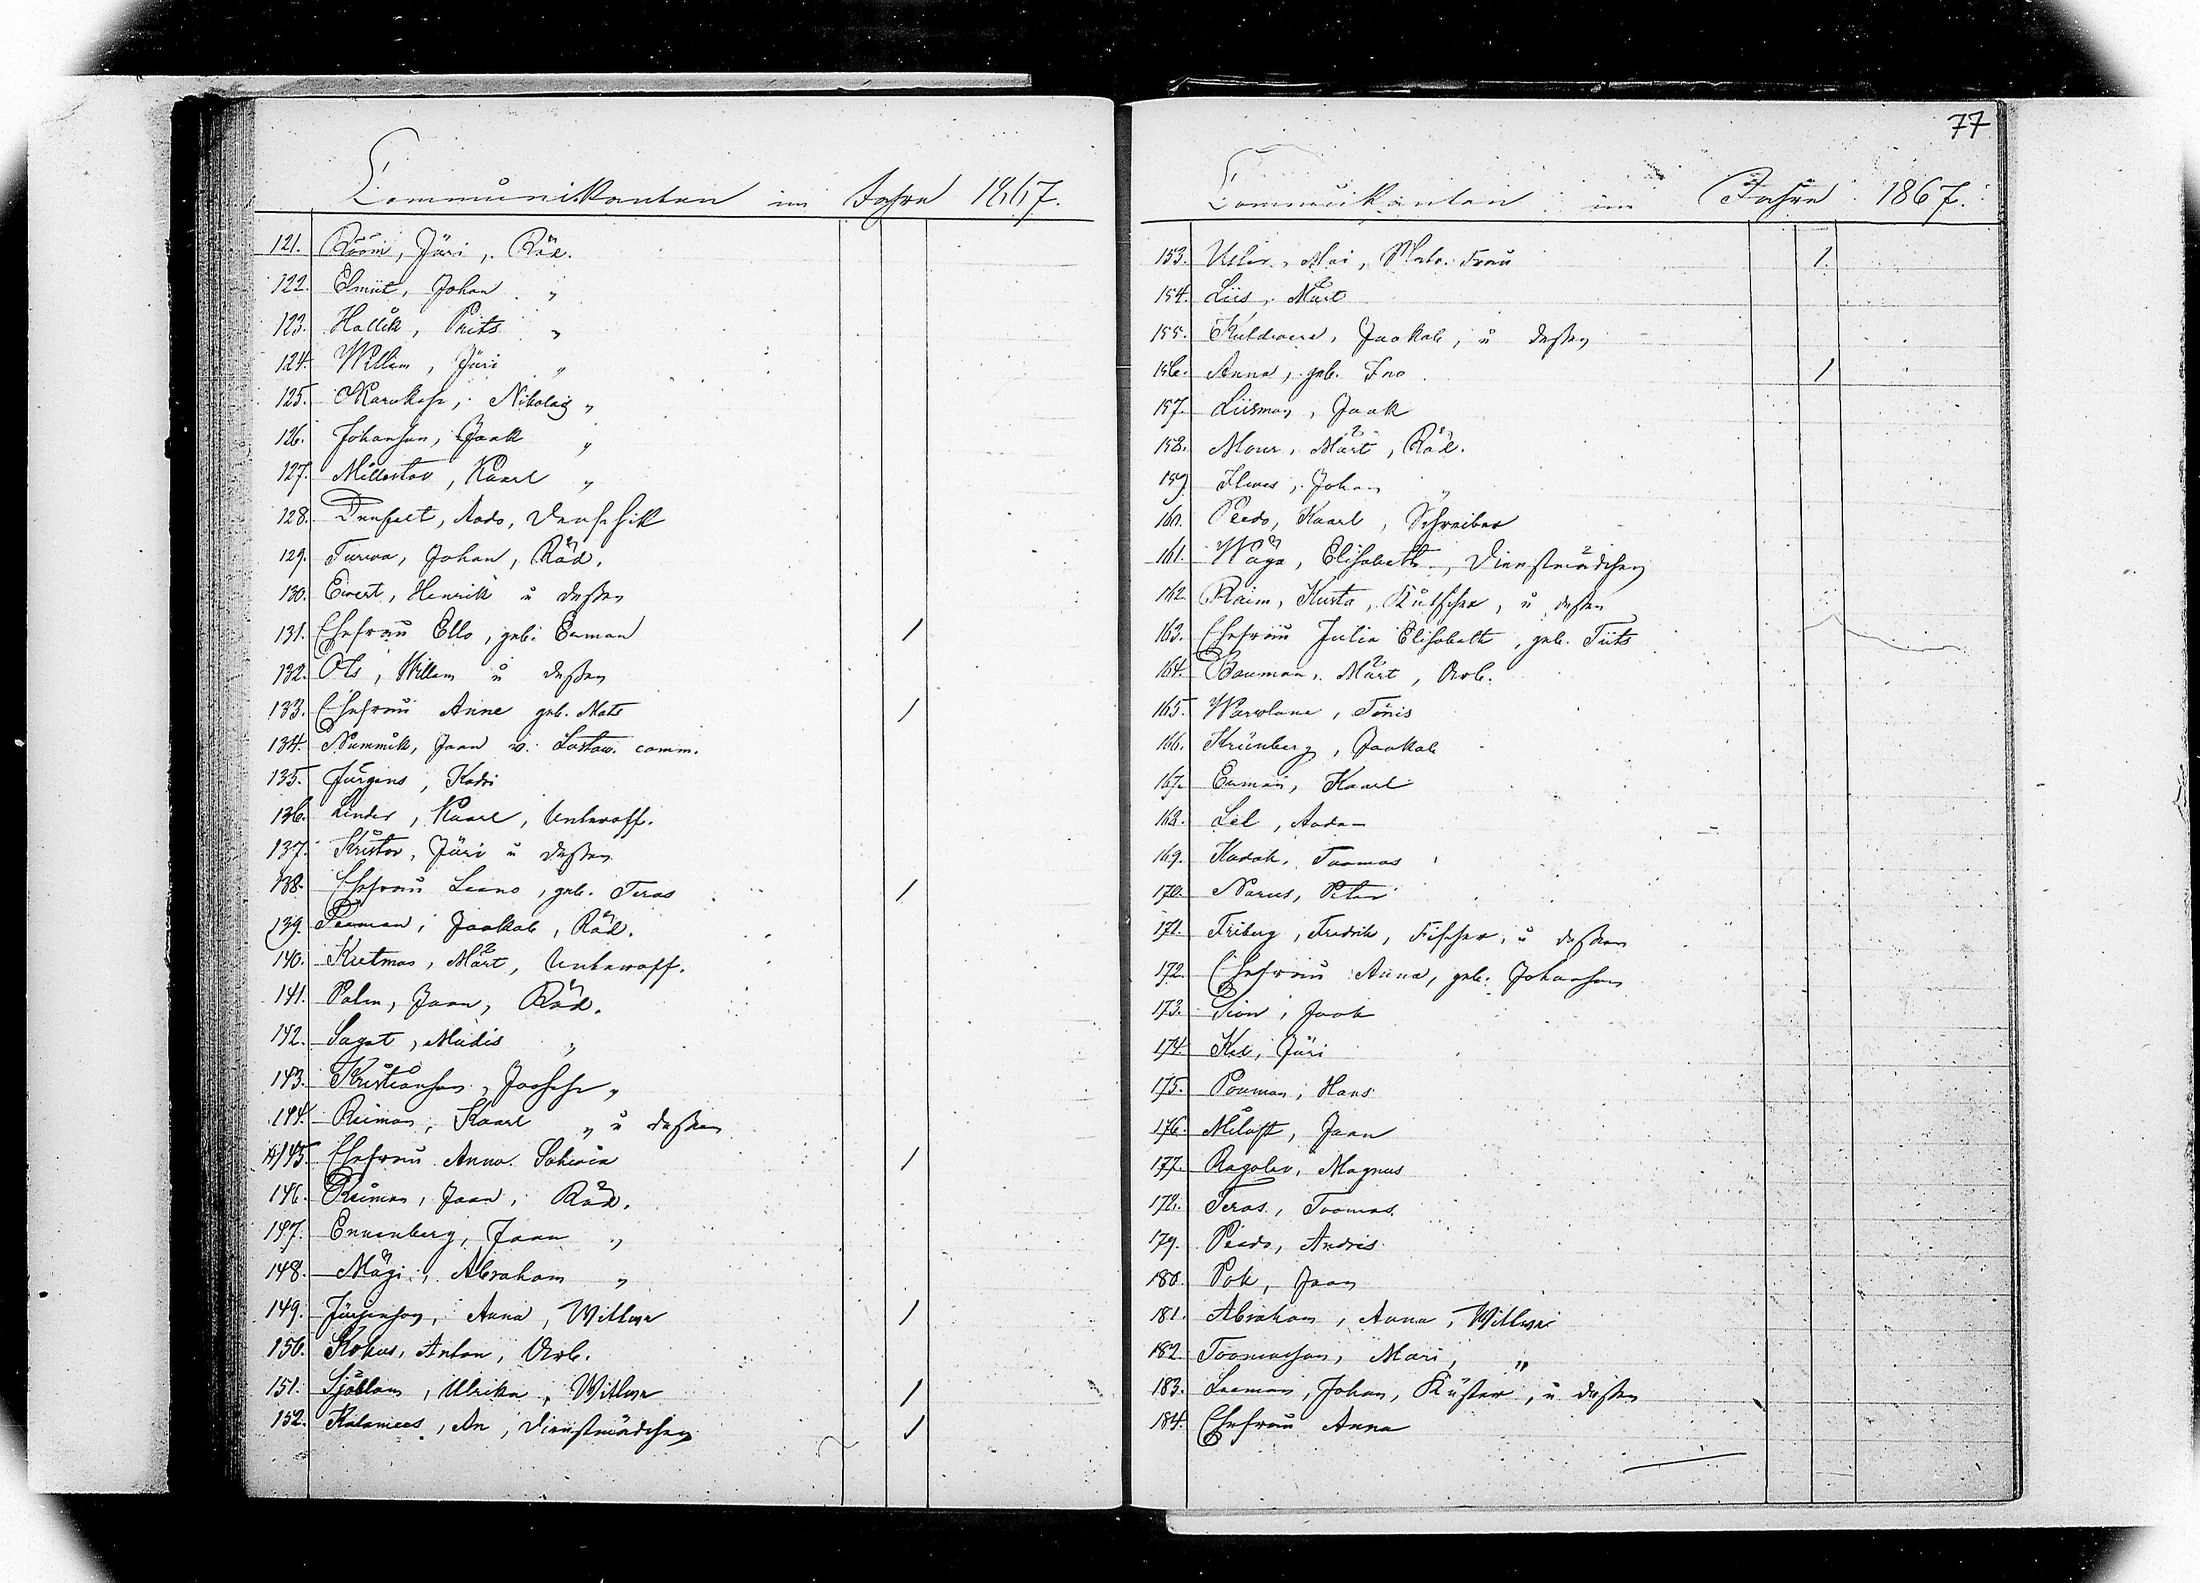 Communikanten im Jahre 1867.
121. Room, Jüri, Räd.
122. Elmiit, Johan "
123. Hallik, Prits "
124. Willem, Jüri "
125. Nikolai "
126. Johanson, Jaak "
127. Millestov, Kaarl "
128. Ado,
129. Turwa, Johan, Räd.
130. Ewert, Henrik u dessen
131. Ehefrau Ello, geb. Eeman 1
132. Ots, Willem u dessen
133. Ehefrau Anne geb. Mats 1
134. Nummik, Jaan comm.
135. Jürgens, Kadri
136. Linder, Kaarl, Unteroff.
137. Kristov, Jüri u dessen
138. Ehefrau Leeno, geb. Teras 1
139. Peeman, Jaakob, Räd.
140. Kietmas, Märt, Unteroff.
141. Palm, Jaan, Räd.
142. Sagat, Madis "
143. Kristianson, Joosep "
144. Reiman, Kaarl " u dessen
145. Ehefrau Anna 1
146. Reiman, Jaan, Räd.
147. Ennenberg, Jaan "
148. Mägi, Abraham "
149. Jürjenson, Anna, Wittwe 1
150. Kokus, Anton, Arb.
151. Sjöblom, Ulrika, Wittwe 1
152. Kalamees, An, Dienstmädchen 1
77
Communikanten im Jahre 1867.
153. Mai, Matr. Frau 1
154. Liis, Märt
155. Kuldwere, Jaakob, u dessen
156. Anna, geb. Ino 1
157. Liisman, Jaak
158. Mour, Märt, Räd.
159. Ilwes, Johan "
160. Peedo, Kaarl, Schreiber
161. Wäga, Elisabeth, Dienstmädchen
162. Raim, Kusta, Kutscher, u dessen
163. Ehefrau Julia Elisabeth, geb. Tiits
164. Bauman, Märt, Arb.
165. Warwlane, Tönis
166. Krünberg, Jaakob
167. Eeman, Kaarl
168. Lel, Aadam
169. Kadak, Toomas
170. Narus, Peter
171. Friberg, Fredrik, Fischer, u dessen
172. Ehefrau Anna, geb. Johanson
173. Pion, Jaak
174. Kel, Jüri
175. Pouman, Hans
176. Jaan
177. Ragolev, Magnus
178. Teras, Toomas
179. Peedo, Andres
180. Pok, Jaan
181. Abraham, Anna, Wittwe
182. Toomason, Mari, "
183. Leeman, Johan, Küster, u dessen
184. Ehefrau Anna